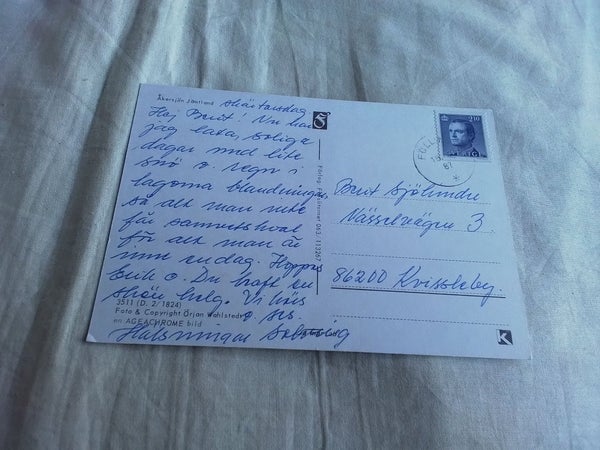 Åkersjön Jämtland
skärtorsdag
Hej Berit! Nu har
jag lata, soliga
dagar med lite
snö o. regn i
lagoma blandningar
så att man inte
får samvetskval
för att man är
inne en dag. Hoppas
Erik o. Du haft en
skön helg. Vi hörs
o. ses.
Hälsningar Solveig
3511 (D. 2/1824)
Foto & Copyright Örjan Wahlstedt
en AGEACHROME bild
Förlag
063/113267
2.10
87
Berit Sjölinder
Nässelvägen 3
86200 Kvissleby
K